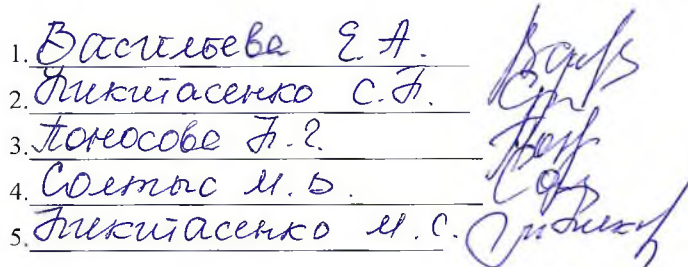 1. Васильева Е. А.
2. Никитасенко С. Н.
3. Поносова Н. Г.
4. Солтыс М. В.
5. Никитасенко М. С.